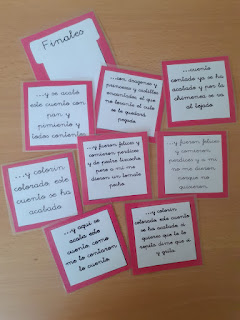 Finales
...y se acabó
este cuento con
pan y
pimiento y
todos contentos.
...con dragones y
princesas y castillos
encantados, el que
no levante el culo
se le quedará
pegado.
...cuento
contado ya se ha
acabado y por la
chimenea se va
al tejado.
...y colorín
colorado este
cuento se ha
acabado.
...y fueron felices y
comieron perdices
y de postre
pero a mi me
dieron un tomate
pocho.
...y fueron felices
y comieron
perdices y a mi
no me dieron
porque no
quisieron.
...y aquí se
acaba este
cuento, como
me lo contaron
lo cuento.
...y colorín
colorado este cuento
se ha acabado si
quieres que te lo
repita dime que sí
y grita.